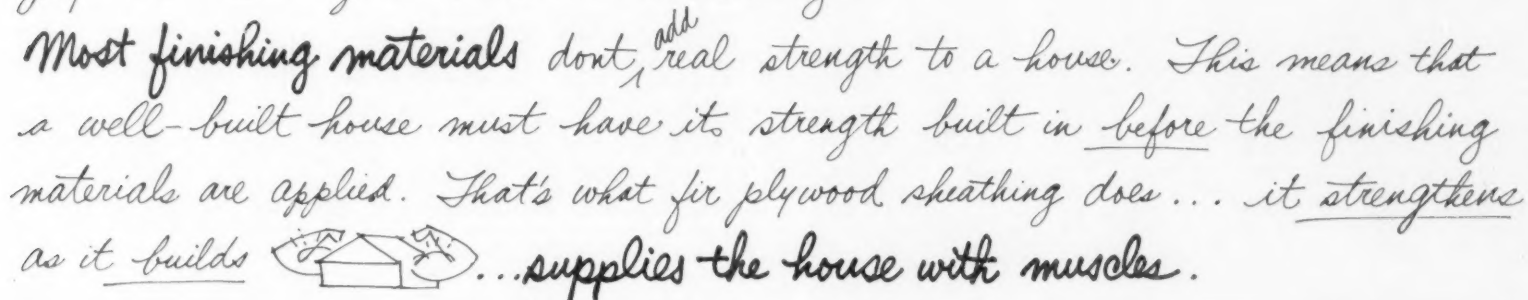 Most finishing materials dont add real strength to a house. This means that
a well-built house must have its strength built in before the finishing
materials are applied. That's what fir plywood sheathing does... it strengthens
as it builds ...supplies the house with muscles.